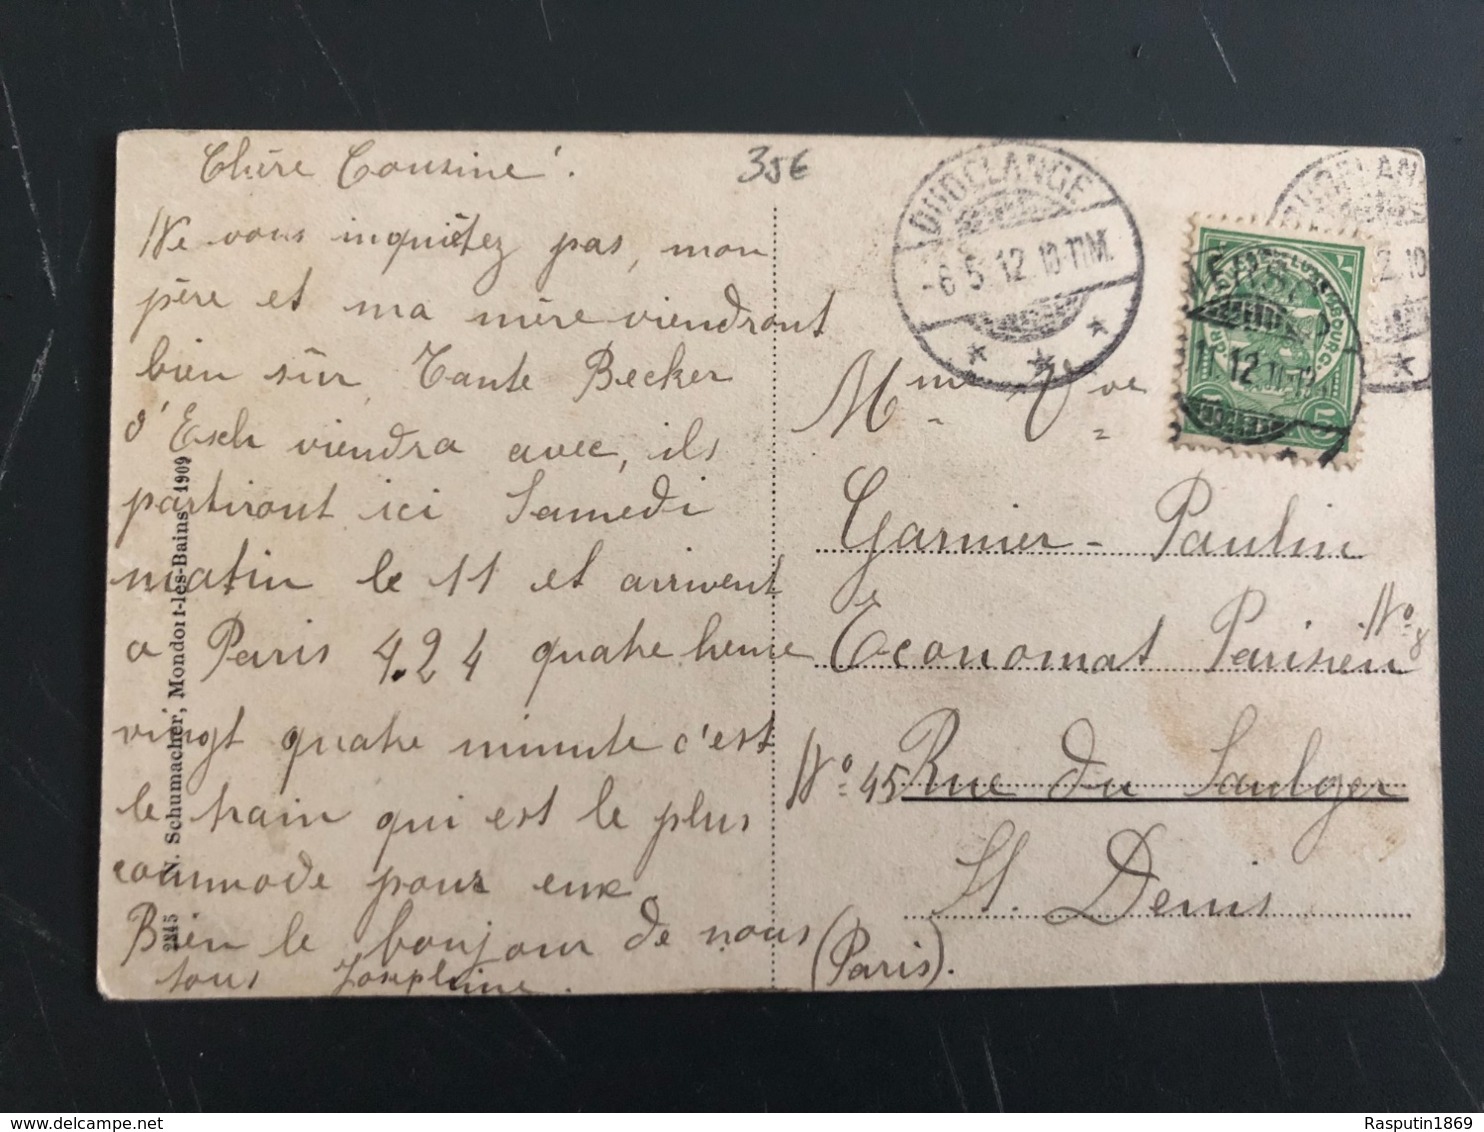 Chère Cousine!
Ne vous inquiètez pas, mon
père et ma mère viendront
bien sûr, Tante Becker
d'Esch viendra avec, ils
partiront ici Samedi
matin le 11 et arrivent
a Paris 4.24 quatre heure
vingt quatre minute c'est
le train qui est le plus
commode pour eux.
Bien le bonjour de nous
tous Josephine.
35€
2845 N. Schumacher, Mondorf-les-Bains 1909
DUDELANGE
-6 5.12.10-11M.
LUXEMBOURG
5
12
Mme Vve
Garnier-Paulin
Economat Parisien No. 8
No 45 Rue du Saulger
St. Denis
(Paris).
Rasputin1869